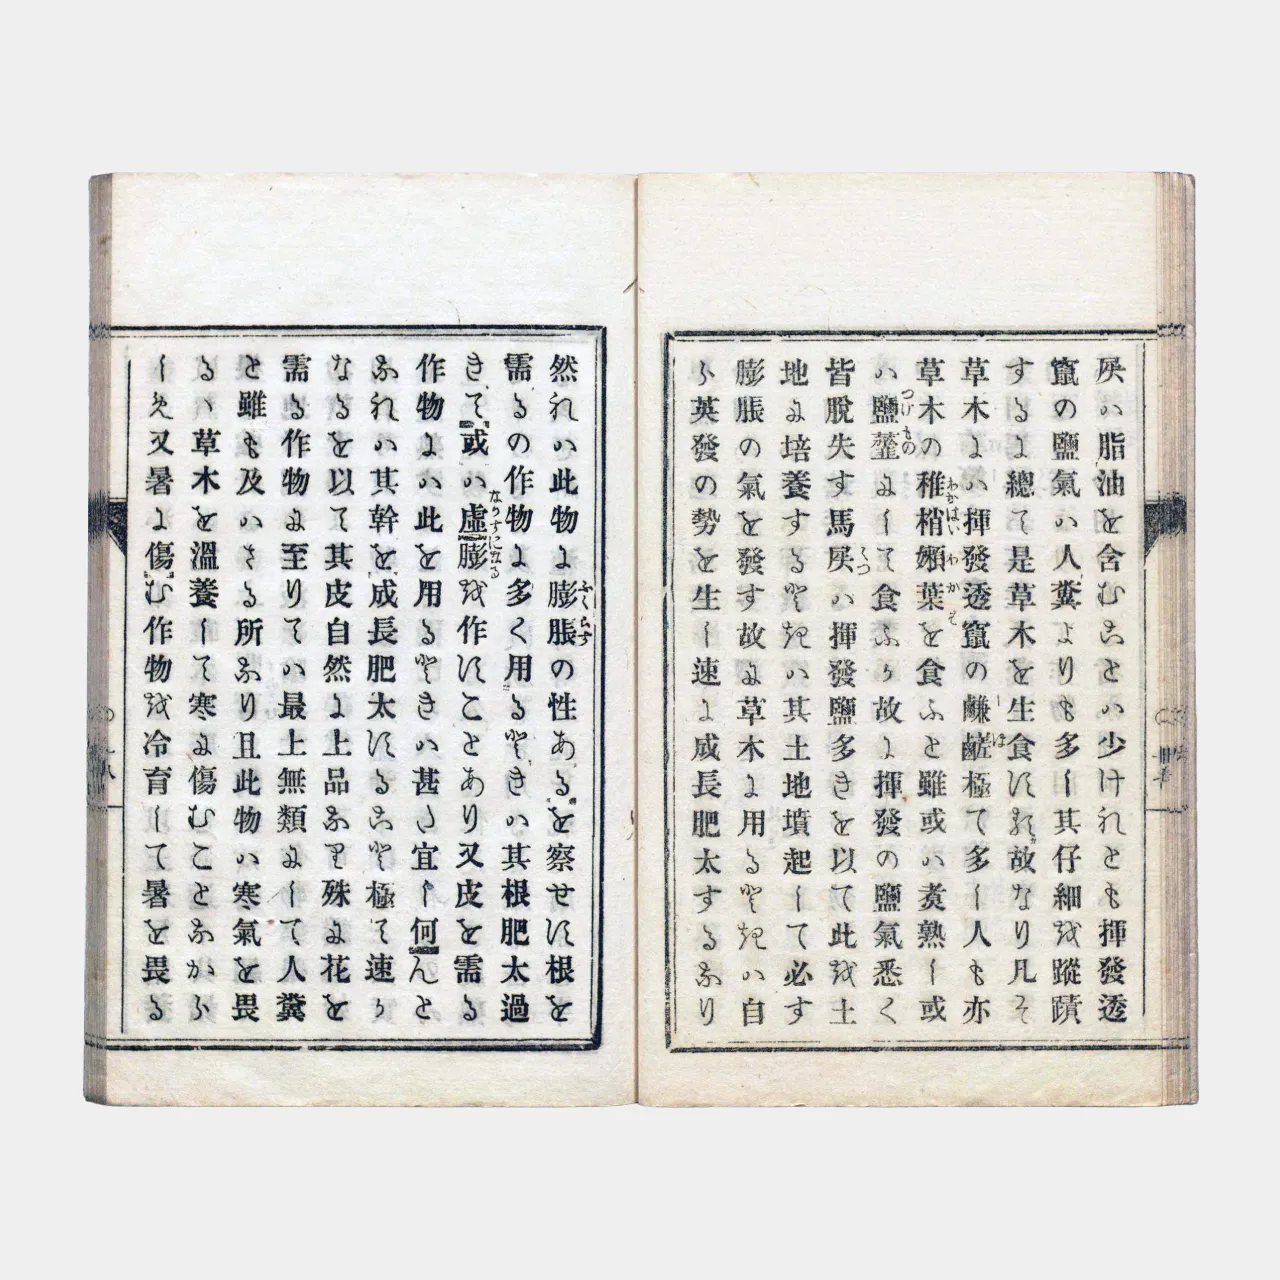 屎ハ脂油を含むことハ少けれとも揮發透
竄の鹽氣ハ人糞よりも多し其仔細越蹤蹟
するに總て是草木を生食する故なり凡そ
草木にハ揮發透竄の鹹鹺極て多し人も亦
草木の稚梢嫩葉を食ふと雖或ハ煮熟し或
ハ鹽虀にして食ふか故に揮發の鹽氣悉く
皆脫失す馬屎ハ揮發鹽多きを以て此越土
地に培養するときハ其土地墳起して必す
膨脹の氣を發す故に草木に用るときハ自
ら英發の勢を生し速に成長肥太するなり
然れハ此物に膨脹の性あるを察せす根を
需るの作物に多く用るときハ其根肥太過
きて或ハ虛膨越作すことあり又皮を需る
作物にハ此を用るときハ甚た宜し何んと
なれハ其幹を成長肥太することを極て速か
なるを以て其皮自然に上品なり殊に花を
需る作物に至りてハ最上無類にして人糞
と雖も及ハさる所なり且此物ハ寒氣を畏
るハ草木を溫養して寒に傷むことなから
しめ又暑に傷む作物越冷育して暑を畏る